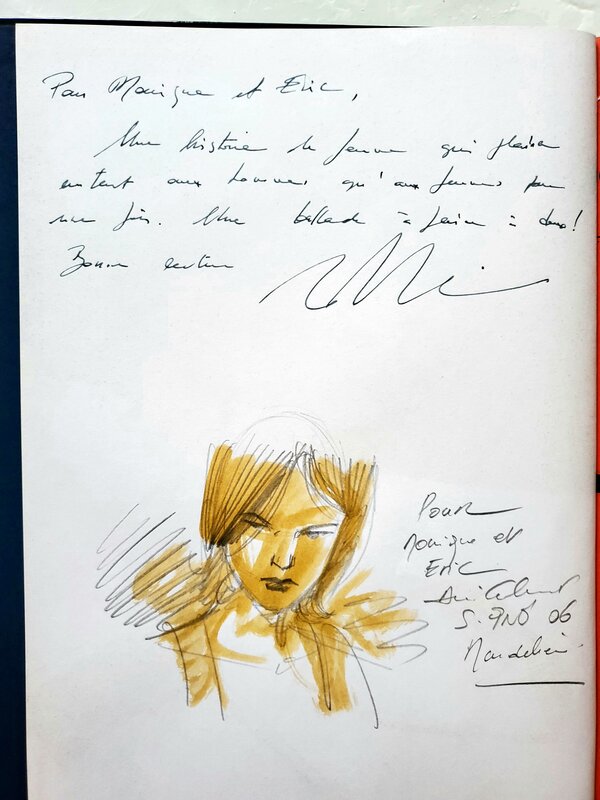 Pour Monique et Eric,
Une histoire de femme qui plaira
autant aux hommes qu'aux femmes pour
une fois. Une ballade à faire à deux!
Bonne lecture
Pour
Monique et
Eric
Amicalement
S. 06